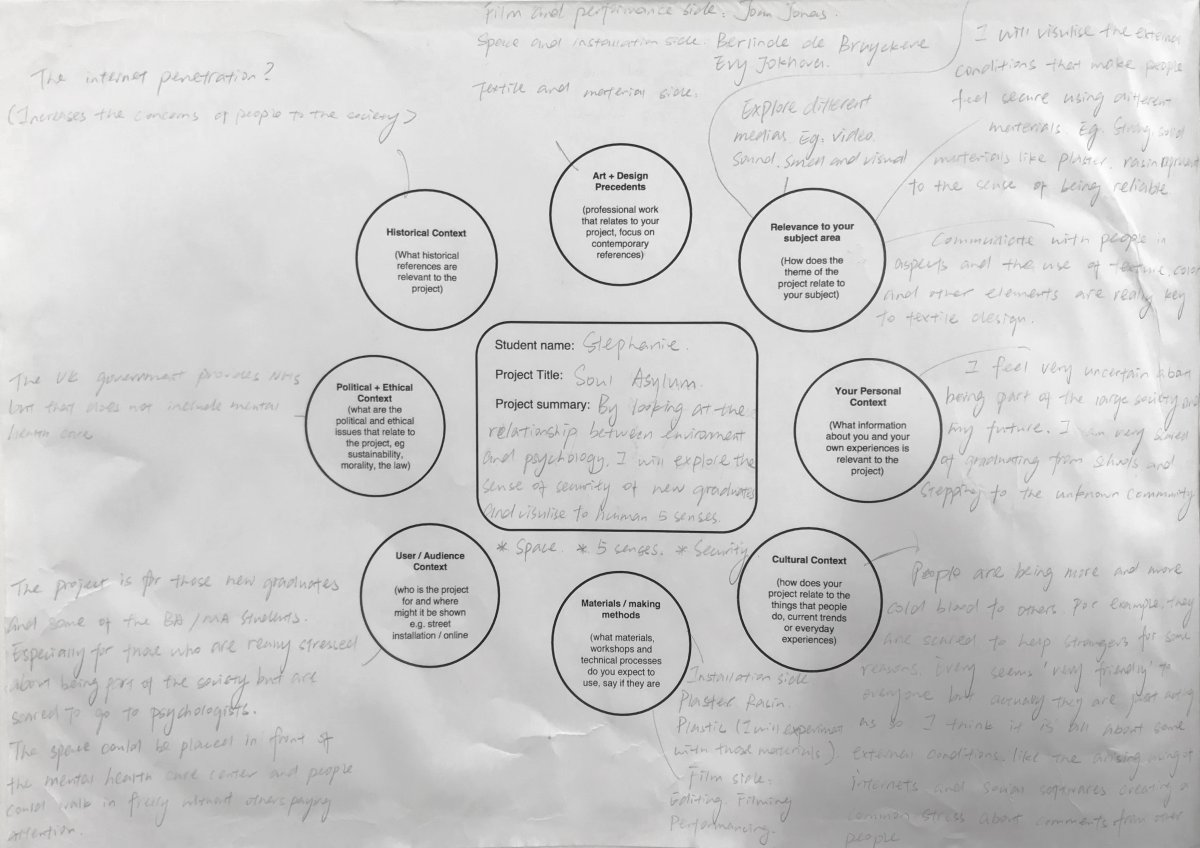 Film and performance side: Joan Jonas.
Space and installation side: Berlinde de Bruyckere
Evy Jokhova.
Textile and material side:
The internet penetration?
(Increases the concerns of people to the society)
Explore different
medias. Eg. video.
Sound, smell and visual
I will visulise the external
conditions that make people
feel secure using different
materials. Eg. Strong, solid
materials like plaster, rasin
to the sense of being reliable
Art + Design
Precedents
(professional work
that relates to your
project, focus on
contemporary
references)
Historical Context
(What historical
references are
relevant to the
project)
Relevance to your
subject area
(How does the
theme of the
project relate to
your subject)
Communicate with people in
aspects and the use of texture, color
and other elements are really key
to textile design.
Student name: Stephanie.
Project Title: Soul Asylum.
Project summary: By looking at the
relationship between enviroment
and psychology, I will explore the
sense of security of new graduates
and visulise to human 5 senses.
* Space. * 5 senses. * Security.
Political + Ethical
Context
(what are the
political and ethical
issues that relate to
the project, eg
sustainability,
morality, the law)
The UK government provides NHS
but that does not include mental
health care
Your Personal
Context
(What information
about you and your
own experiences is
relevant to the
project)
I feel very uncertain about
being part of the large society and
my future. I am very scared
of graduating from schools and
stepping to the unknown community
User / Audience
Context
(who is the project
for and where
might it be shown
e.g. street
installation / online
The project is for those new graduates
and some of the BA / MA students.
Especially for those who are really stressed
about being part of the society but are
scared to go to psychologists.
The space could be placed in front of
the mental health care center and people
could walk in freely without others paying
attention.
Materials / making
methods
(what materials,
workshops and
technical processes
do you expect to
use, say if they are
Installation side
Plaster. Rasin.
Plastic (I will experiment
with those materials).
Film side:
Editing. Filming
Performancing.
Cultural Context
(how does your
project relate to the
things that people
do, current trends
or everyday
experiences)
People are being more and more
cold blood to others. For example, they
are scared to help strangers for some
reasons. Every seems very friendly to
everyone but actually they are just acting
as so. I think it is all about some
External conditions. like the arising of
internets and social softwares creating a
common stress about comments from other
people